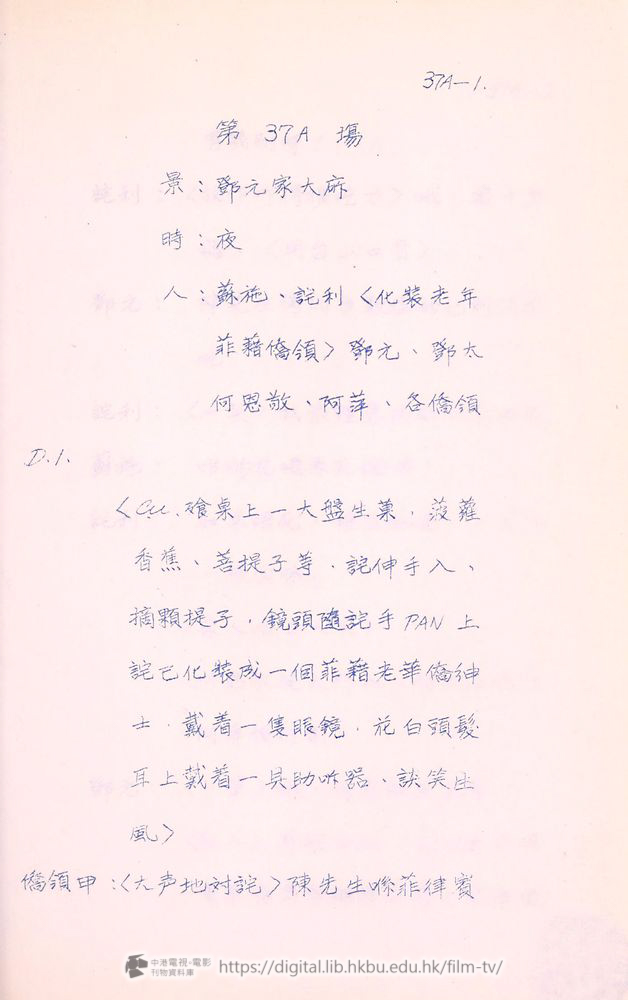 37A-1.
第 37A 場
景：鄧元家大廳
時：夜
人：蘇施、詫利〈化裝老年
菲藉僑領〉鄧元、鄧太
何思敬、阿萍、各僑領
D.I.
〈C.U.飱桌上一大盤生菓．菠蘿
香蕉、菩提子等．詫伸手入、
摘顆提子．鏡頭隨詫手PAN上
詫已化裝成一個菲藉老華僑紳
士．戴着一隻眼鏡．花白頭髮
耳上戴着一具助听器、談笑生
風〉
僑領甲：〈大声地対詫〉陳先生喺菲律賓
中港電視·電影
刊物資料庫
https://digital.lib.hkbu.edu.hk/film-tv/